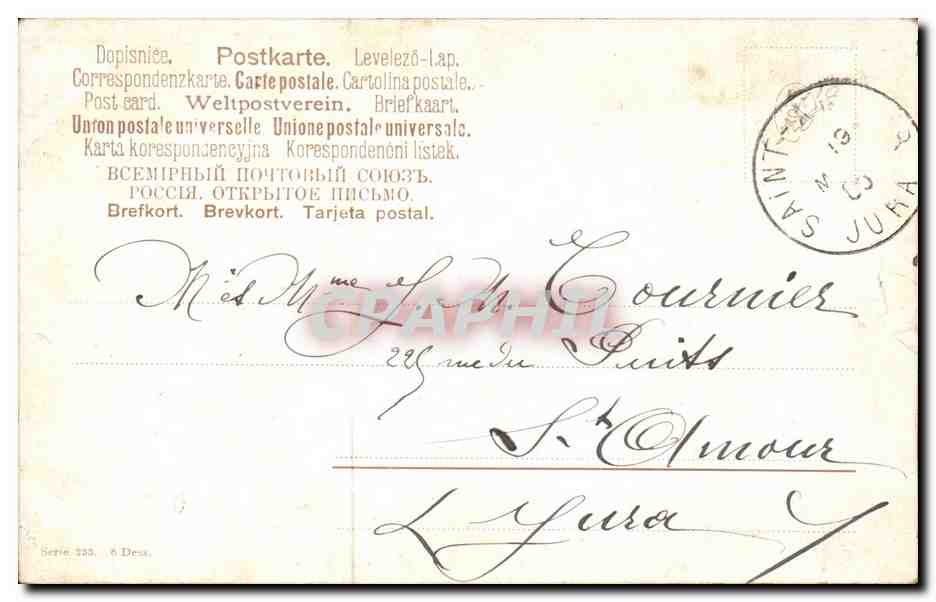 Dopisnice. Postkarte. Levelező-Lap.
Correspondenzkarte. Carte postale. Cartolina postale.
Post card. Weltpostverein. Briefkaart.
Union postale universelle Unione postale universale.
Karta korespondencyjna Korespondenční lístek.
ВСЕМІРНЫЙ ПОЧТОВЫЙ СОЮЗЪ.
РОССІЯ. ОТКРЫТОЕ ПИСЬМО.
Brefkort. Brevkort. Tarjeta postal.
SAINT-
19
M
JURA
M et Mme Tournier
CPAPHIL
rue du Puits
St Amour
Jura
Serie 253. 6 Dess.